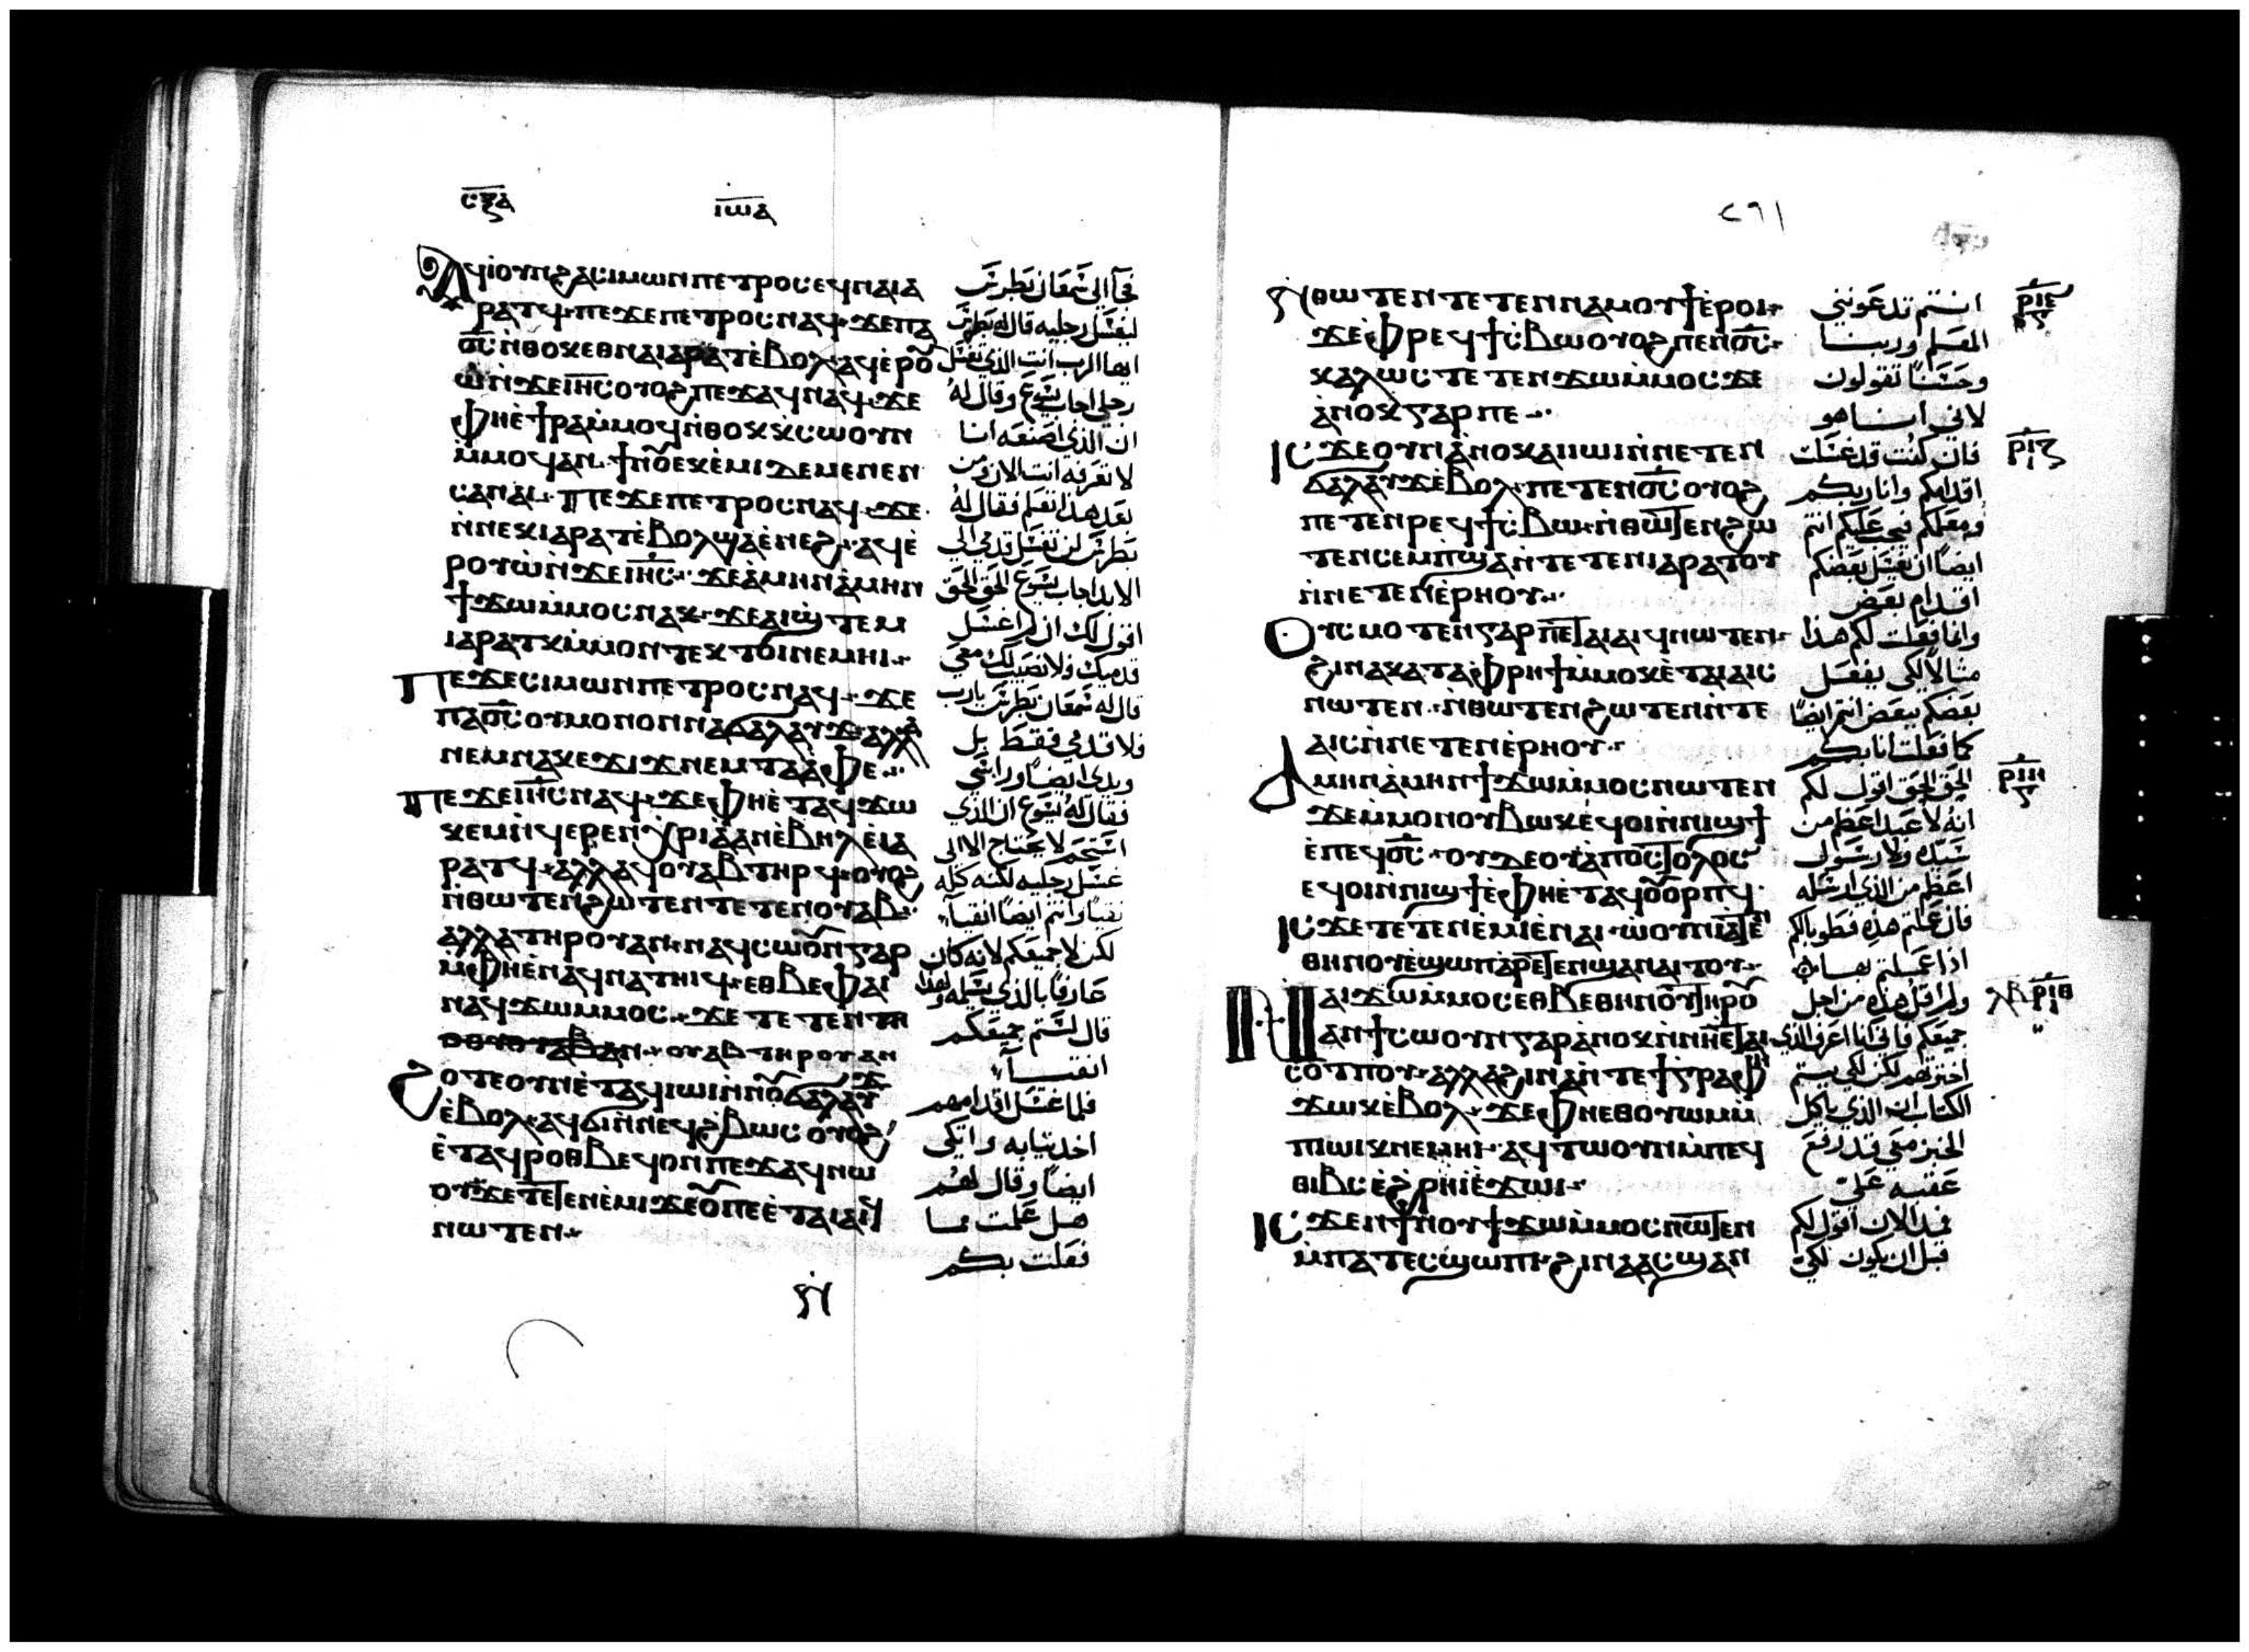 ⲥⲝⲁ
ⲓⲱⲁ
ⲁϥⲓⲟⲩⲛϩⲁⲥⲓⲙⲱⲛⲡⲉⲧⲣⲟⲥⲉϥⲛⲁⲓⲁ
ⲣⲁⲧϥ· ⲡⲉϫⲉⲡⲉⲧⲣⲟⲥⲛⲁϥ· ϫⲉⲡⲁ
ϭ̅ⲥ̅ⲛ̀ⲑⲟⲕⲉⲑⲛⲁⲓⲁⲣⲁⲧⲉ̀ⲃⲟⲗⲁϥⲉ̀ⲣⲟⲩ̃
ⲱⲛ̀ϫⲉⲓⲏ̅ⲥ̅ⲟⲩⲟϩⲡⲉϫⲁϥⲛⲁϥ· ϫⲉ
ⲫⲏⲉ̀ϯⲣⲁⲙ̀ⲙⲟϥⲛ̀ⲑⲟⲕⲕⲥⲱⲟⲩⲛ
ⲙ̀ⲙⲟϥⲁⲛ· ϯⲛⲟⲩ̃ⲉⲕⲉ̀ⲙⲓⲇⲉⲙⲉⲛⲉⲛ
ⲥⲁⲛⲁⲓ· ⲡⲉϫⲉⲡⲉⲧⲣⲟⲥⲛⲁϥ· ϫⲉ
ⲛ̀ⲛⲉⲕⲓⲁⲣⲁⲧⲉ̀ⲃⲟⲗϣⲁⲉ̀ⲛⲉϩ· ⲁϥⲉ̀
ⲣⲟⲩⲱⲛ̀ϫⲉⲓⲏ̅ⲥ̅· ϫⲉⲁ̀ⲙⲏⲛⲁ̀ⲙⲏⲛ
ϯϫⲱⲙ̀ⲙⲟⲥⲛⲁⲕ· ϫⲉⲁⲓϣⲧⲉⲙ
ⲓⲁⲣⲁⲧⲕⲙ̀ⲙⲟⲛⲧⲉⲕⲧⲟⲓⲛⲉⲙⲏⲓ·
ⲡⲉϫⲉⲥⲓⲙⲱⲛⲡⲉⲧⲣⲟⲥⲛⲁϥ· ϫⲉ
ⲡⲁϭ̅ⲥ̅ⲟⲩⲙⲟⲛⲟⲛⲛⲁϭⲁⲗⲁⲩϫⲁⲗⲗⲁ
ⲛⲉⲙⲛⲁⲕⲉϫⲓϫⲛⲉⲙⲧⲁⲁ̀ⲫⲉ·
ⲡⲉϫⲉⲓⲏ̅ⲥ̅ⲛⲁϥ· ϫⲉⲫⲏⲉ̀ⲧⲁϥϫⲱ
ⲕⲉⲙⲛ̀ϥⲉⲣⲉⲛⲭⲣⲓⲁⲁⲛⲉ̀ⲃⲏⲗⲉ̀ⲓⲁ
ⲣⲁⲧϥ· ⲁⲗⲗⲁϥⲟⲩⲁⲃⲧⲏⲣϥ· ⲟⲩⲟϩ
ⲛ̀ⲑⲱⲧⲉⲛϩⲱⲧⲉⲛⲧⲉⲧⲉⲛⲟⲩⲁⲃ·
ⲁⲗⲗⲁⲧⲏⲣⲟⲩⲁⲛ· ⲛⲁϥⲥⲱⲟⲩ̃ⲛⲅⲁⲣ
ⲙ̀ⲫⲏⲉ̀ⲛⲁϥⲛⲁⲧⲏⲓϥ· ⲉⲑⲃⲉⲫⲁⲓ
ⲛⲁϥϫⲱⲙ̀ⲙⲟⲥ· ϫⲉⲧⲉⲧⲉⲛ
ⲟⲩⲁⲃⲧⲏⲣⲟⲩⲁⲛ
ϩⲟⲧⲉⲟⲩⲛⲉ̀ⲧⲁϥⲓⲱⲓⲛ̀ⲛⲟⲩ̃ϭⲁⲗⲁⲩϫ
ⲉ̀ⲃⲟⲗ· ⲁϥϭⲓⲛ̀ⲛⲉϥϩⲃⲱⲥⲟⲩⲟϩ
ⲉ̀ⲧⲁϥⲣⲟⲑⲃⲉϥⲟⲛⲡⲉϫⲁϥⲛⲱ
ⲟⲩϫⲉⲧⲉⲧⲉⲛⲉ̀ⲙⲓϫⲉⲟⲩ̃ⲡⲉⲉ̀ⲧⲁⲓⲁⲓϥ
ⲛⲱⲧⲉⲛ·
فجآ الى شمعان بطرس
ليغسل رجليه قال له بطرس
ايها الرب انت الذي تغسل
رجلي اجاب يسوع وقال له
ان الذي اصنعه انا
لا تعرفه انت الان ومن
بعد هذا تعلم فقال له
بطرس لن تغسل قدمي الى
الابد اجاب يسوع الحق الحق
اقول لك ان لم اغسل
قدميك فلا نصيب لك معي
قال له شمعان بطرس يارب
فلا قدمي فقط بل
ويدي ايضا وراسي
فقال له يسوع ان الذي
استحم لا يحتاج الا الى
غسل رجليه لكنه كله
نقيا وانتم ايضا انقيآ
لكن لا جميعكم لانه كان
عارفا بالذي يسلمه ولهذا
قال لستم جميعكم
انقيـــآ
فلما غسل اقدامهم
اخد تيابه واتكى
ايضا وقال لهم
هل علمت ما
فعلت بكم
ⲛ̀
٢٦١
ⲛ̀ⲑⲱⲧⲉⲛⲧⲉⲧⲉⲛⲛⲁⲙⲟⲩϯⲉ̀ⲣⲟⲓ·
ϫⲉⲫ̀ⲣⲉϥϯⲥ̀ⲃⲱⲟⲩⲟϩⲡⲉⲛϭ̅ⲥ̅·
ⲕⲁⲗⲱⲥⲧⲉⲧⲉⲛϫⲱⲙ̀ⲙⲟⲥϫⲉ
ⲁ̀ⲛⲟⲕⲅⲁⲣⲡⲉ·
ⲓⲥϫⲉⲟⲩⲛⲁ̀ⲛⲟⲕⲁⲓⲓⲱⲓⲛ̀ⲛⲉⲧⲉⲛ
ϭⲁⲗⲁⲩϫⲉ̀ⲃⲟⲗ· ⲡⲉⲧⲉⲛϭ̅ⲥ̅ⲟⲩⲟϩ
ⲡⲉⲧⲉⲛⲣⲉϥϯⲥ̀ⲃⲱ· ⲛ̀ⲑⲱⲧⲉⲛϩⲱ
ⲧⲉⲛⲥⲉⲙⲡ̀ϣⲁⲛ̀ⲧⲉⲧⲉⲛⲓⲁⲣⲁⲧⲟⲩ
ⲛ̀ⲛⲉⲧⲉⲛⲉ̀ⲣⲏⲟⲩ·
ⲟⲩⲥⲙⲟⲧⲉⲛ̀ⲅⲁⲣⲡⲉⲧⲁⲓⲁⲓϥⲛⲱⲧⲉⲛ·
ϩⲓⲛⲁⲕⲁⲧⲁⲫ̀ⲣⲏϯⲁ̀ⲛⲟⲕⲉ̀ⲧⲁⲓⲁⲓⲥ
ⲛⲱⲧⲉⲛ· ⲛ̀ⲑⲱⲧⲉⲛϩⲱⲧⲉⲛⲛ̀ⲧⲉ
ⲁⲓⲥⲛ̀ⲛⲉⲧⲉⲛⲉ̀ⲣⲏⲟⲩ·
ⲁⲙⲏⲛⲁ̀ⲙⲏⲛϯϫⲱⲙ̀ⲙⲟⲥⲛⲱⲧⲉⲛ
ϫⲉⲙ̀ⲙⲟⲛⲟⲩⲃⲱⲕⲉ̀ϥⲟⲓⲛ̀ⲛⲓϣϯ
ⲉ̀ⲡⲉϥϭ̅ⲥ̅· ⲟⲩⲇⲉⲟⲩⲁ̀ⲡⲟⲥⲧⲟⲗⲟⲥ
ⲉϥⲟⲓⲛ̀ⲛⲓϣϯⲉ̀ⲫⲏⲉ̀ⲧⲁϥⲟⲩ̃ⲟⲣⲡϥ·
ⲓⲥϫⲉⲧⲉⲧⲉⲛⲉ̀ⲙⲓⲉ̀ⲛⲁⲓ· ⲱ̀ⲟⲩⲛⲓⲁⲧⲉⲛ
ⲑⲏⲛⲟⲩⲉ̀ϣⲱⲡⲁⲣⲉⲧⲉⲛϣⲁⲛⲁⲓⲧⲟⲩ·
ⲛⲁⲓϫⲱⲙ̀ⲙⲟⲥⲉⲑⲃⲉⲑⲏⲛⲟⲩ̃ⲧⲏⲣⲟⲩ̃
ⲁⲛϯⲥⲱⲟⲩⲛⲅⲁⲣⲁ̀ⲛⲟⲕⲛ̀ⲛⲏⲉⲧⲁⲓ
ⲥⲟⲧⲡⲟⲩ· ⲁⲗⲗⲁϩⲓⲛⲁⲛ̀ⲧⲉϯⲅⲣⲁⲫⲏ
ϫⲱⲕⲉ̀ⲃⲟⲗ· ϫⲉⲫⲏⲉⲑⲟⲩⲱⲙⲙ̀
ⲡⲱⲓⲕⲛⲉⲙⲏⲓ· ⲁϥⲧⲱⲟⲩⲛⲙ̀ⲡⲉϥ
ⲑⲓⲃⲥⲉ̀ϩⲣⲏⲓⲉ̀ϫⲱⲓ·
ⲓⲥϫⲉⲛϯⲛⲟⲩϯϫⲱⲙ̀ⲙⲟⲥⲛⲱⲧⲉⲛ
ⲙ̀ⲡⲁⲧⲉⲥϣⲱⲡⲓ· ϩⲓⲛⲁⲁⲥϣⲁⲛ
انتم تدعونني
المعلم وربنا
وحسنًا تقولون
لاني انا هو
فان كنت قد غسلت
اقدامكم وانا ربكم
ومعلمكم فيجب عليكم انتم
ايضا ان يغسل بعضكم
اقدام بعض
وانما فعلت لكم هذا
مثالا لكي يفعل
بعضكم ببعض انتم ايضا
كما فعلت انا بكم
الحق الحق اقول لكم
انه لا عبد اعظم من
سيده ولا رسول
اعظم من الذي ارسله
فان علمتم هذه فطوباكم
اذا عملتم بها
ولم اقل هذه من اجل
جميعكم فاني انا اعرف الذي
اخترتهم لكن لكي يستم
الكتاب ان الذي ياكل
الخبز معي قد رفع
عقبه علي
فمد الان اقول لكم
قبل ان يكون لكي
ⲣⲓⲉ
ⲣⲓⲍ
ⲣⲓⲏ
ⲗⲃ ⲣⲓⲑ